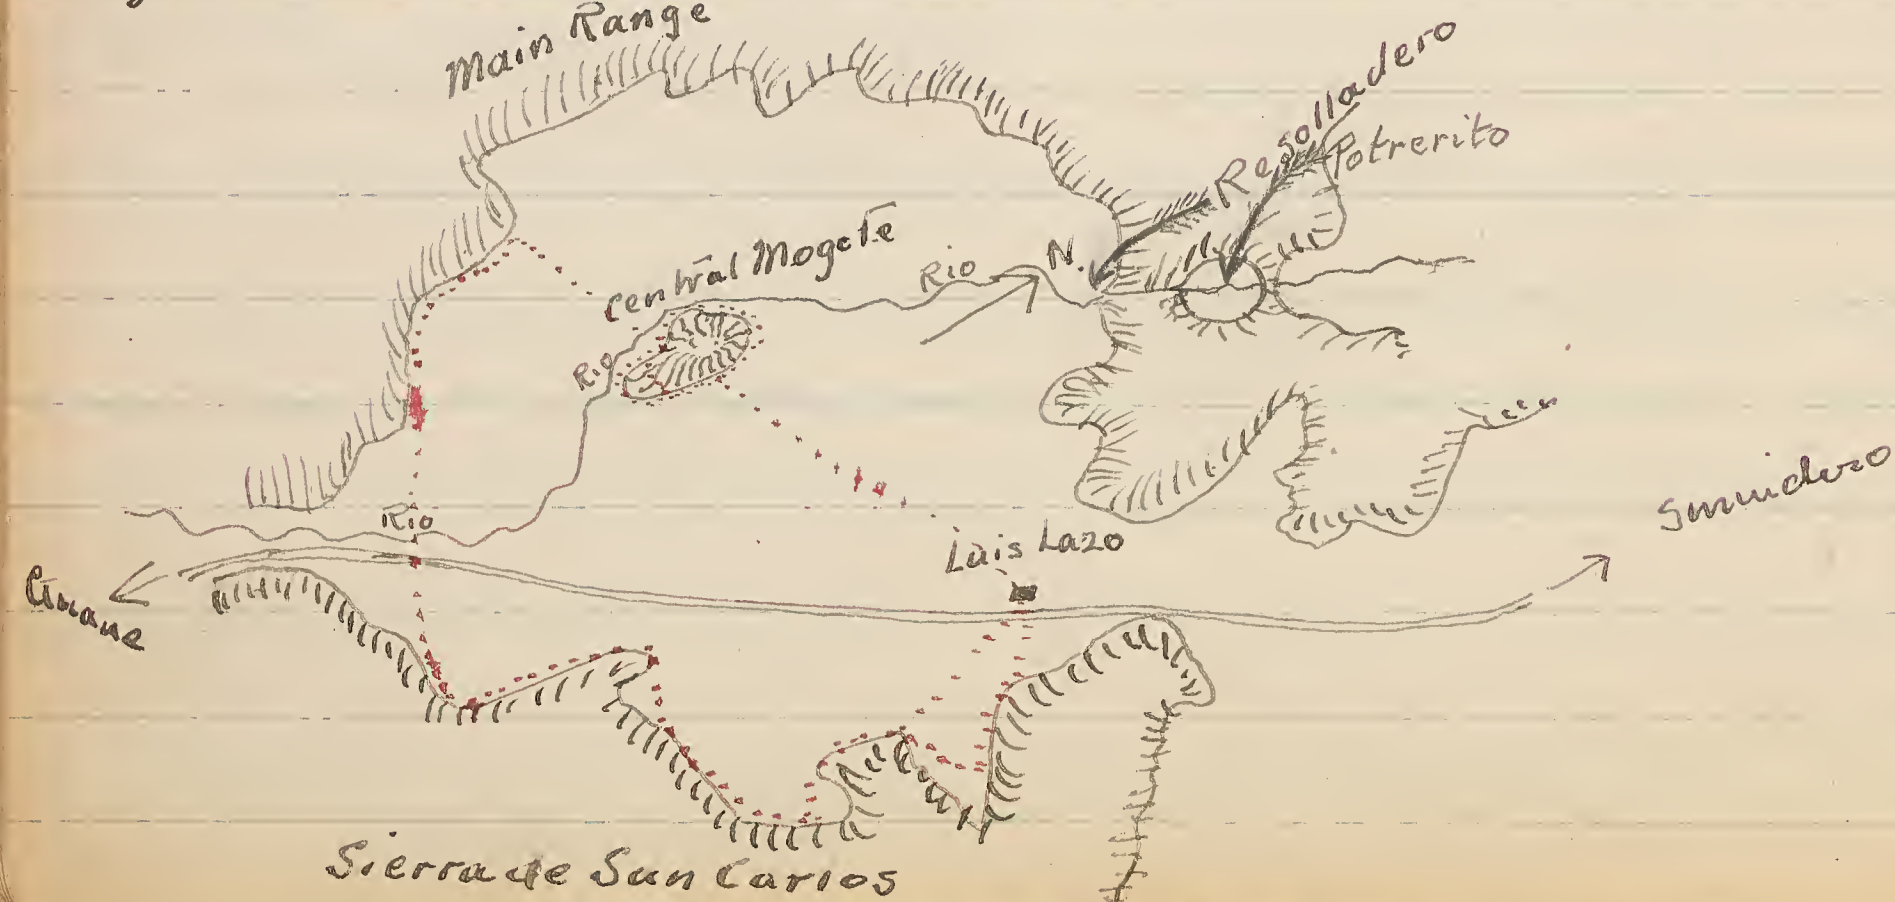 Main Range
Resolladero
Potrerito
N.
Central Mogote
Rio
Rio
Rio
Luis Lazo
Sumidero
Sierra de San Carlos